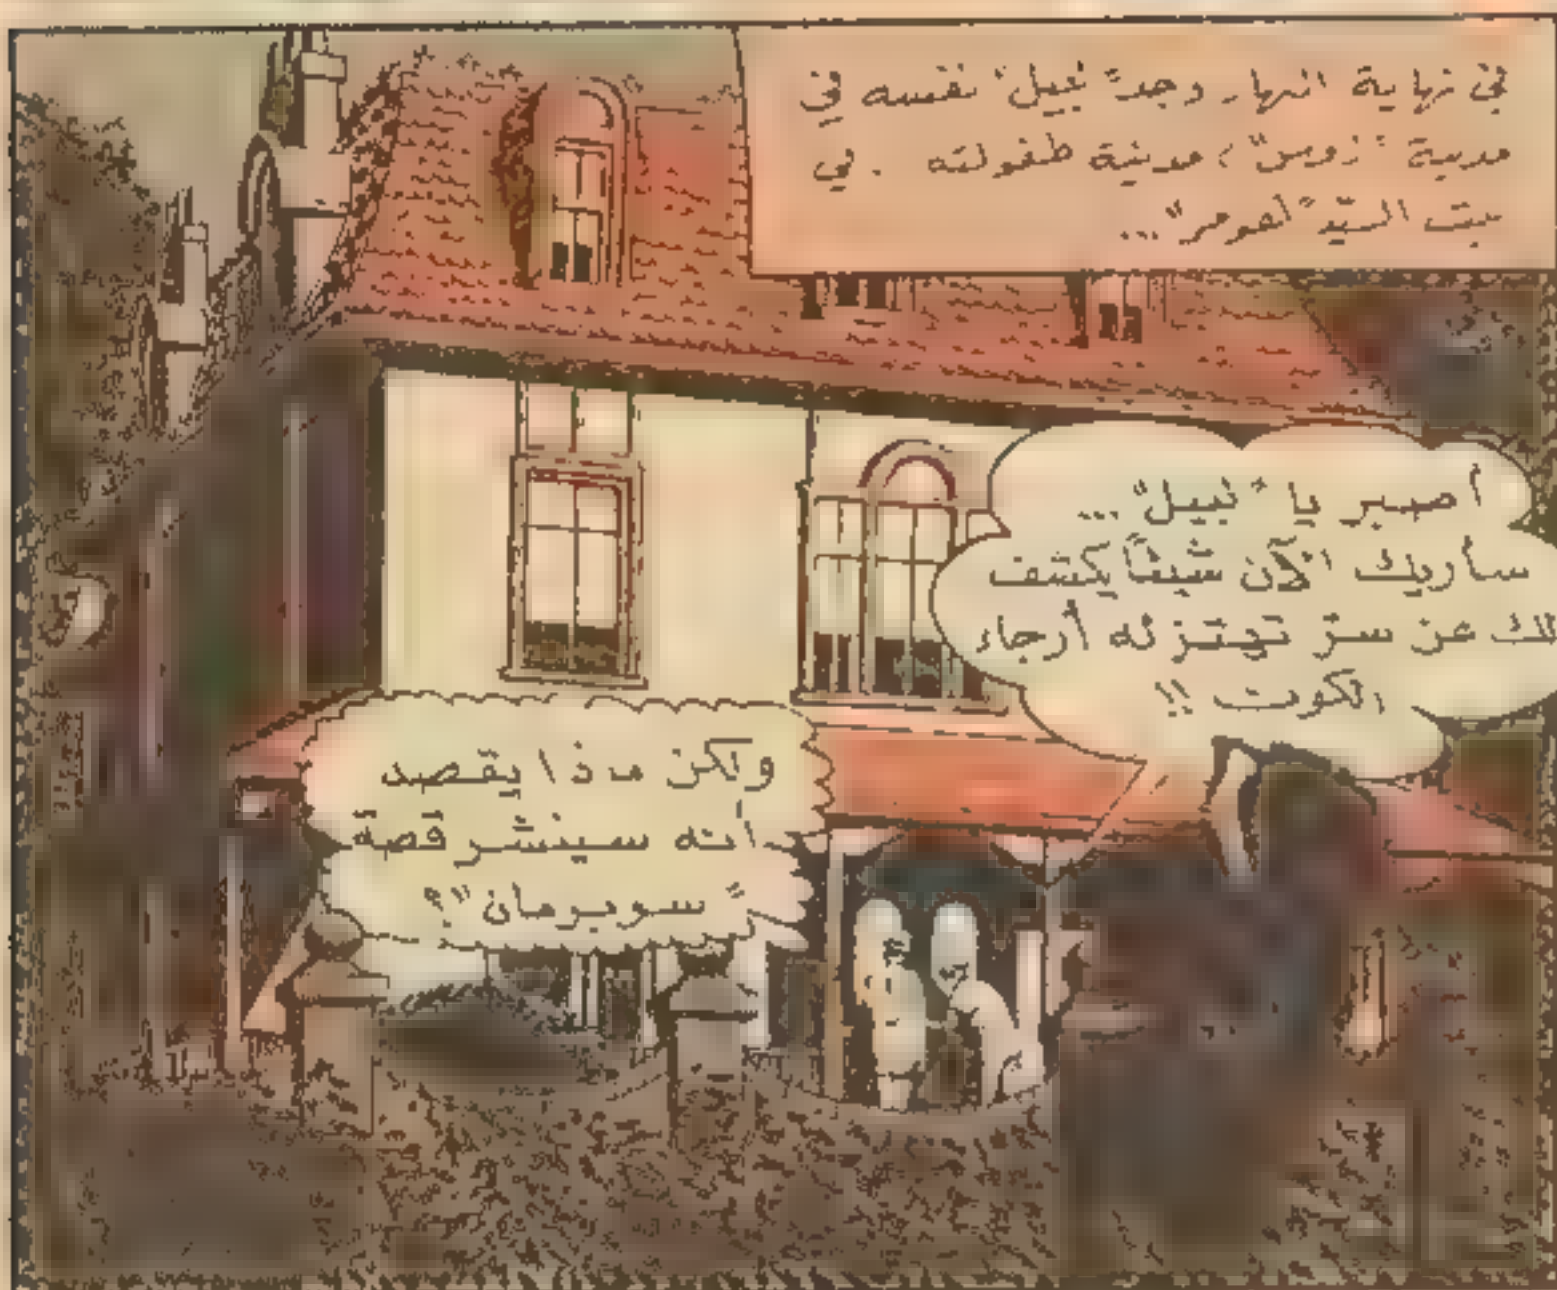 في نهاية النهار وجد "نبيل" نفسه في
مدينة "زوس"، مدينة طفولته . في
بيت السيّد "هومر"...
أصبر يا "نبيل"...
سأريك الآن شيئاً يكشف
لك عن سرّ تهتز له أرجاء
الكون !!
ولكن ماذا يقصد
أنه سينشر قصة
"سوبرمان"؟